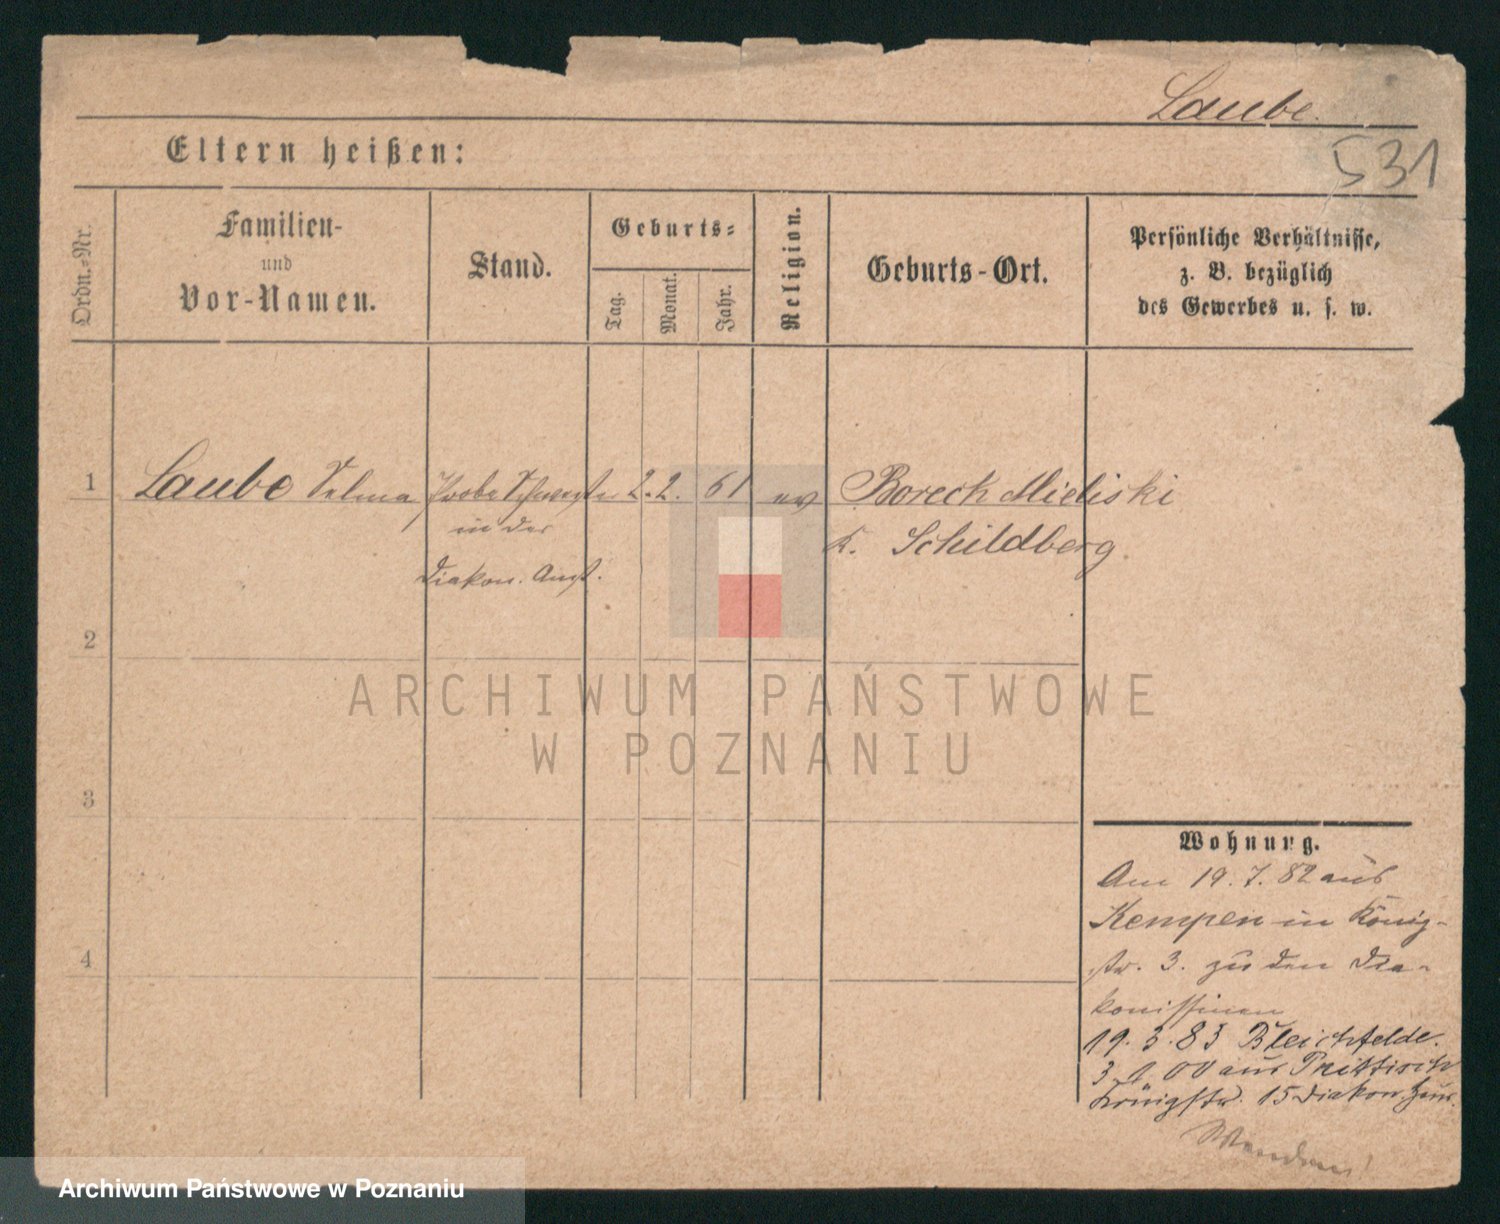 Laube.
531
Eltern heißen:
Ordn.-Nr.
Familien-
und
Vor-Namen.
Stand.
Geburts-
Tag.
Monat.
Jahr.
Religion.
Geburts-Ort.
Persönliche Verhältnisse,
z. B. bezüglich
des Gewerbes u. s. w.
1 Laube Selma Probe Schwester 2. 2. 61 ev Boreck Mieliski
in der K. Schildberg
Diakon. Anst.
2
ARCHIWUM PAŃSTWOWE
W POZNANIU
3
Wohnung.
Am 19. 7. 82 aus
Kempen in König-
str. 3. zu den Dia-
konissinen
19. 3. 83 Bleichfelde.
3 1 00 aus Prittisch
Königstr. 15 Diakon.
4
Archiwum Państwowe w Poznaniu